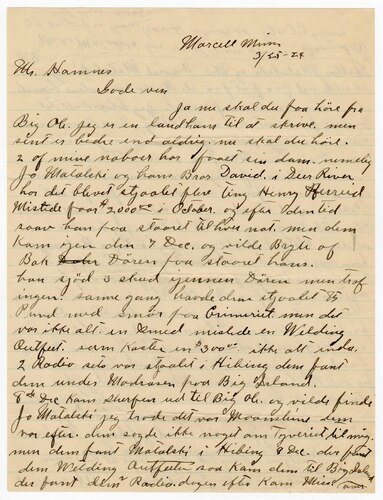 Marcell Minn
3/25-24
Mr. Hamnes
Gode ven
Ja nu skal du faa höre fra
Big Ole. jeg er en landhans til at skrive. men
sent er bedre end aldrig. nu skal du höre.
2 of mine naboer har faaet sin dom. nemelig
Jo Matalski og hans Bror David. i Deer River
har det blevet stjaalet flere ting Henry Herreid
Mistede foor $2,000.00 i October. og efter den tid
saav han paa staaret til hver nat. men dem
kam igen den 7 Dec. og vilde Bryti af
Bak Dören paa staaret hans.
han sjöd 3 skud ijennen Dören men traf
ingen. samme gang havde dem stjaalet 85
Pund med smör fra Crimeriet. men det
var ikke alt. en Smed mistede en Welding
Outfeet. sum kaste en $300.00 ikke alt endo.
2 Radio sets var stjaalet i Hibing dem fant
dem under Madrasen paa Big Island.
8de Dec kam Sherfen ud til Big Ole. og vilde finde
Jo Matalski jeg trode det var Moonshine dem
var efter. dem sagde ikke noget om Tyveriet til mig.
men dem fant Matalski i Hibing 9 Dec. der fant
dem Welding Outfeeten saa kam dem til Big Island
der fant dem Radio. dagen efter kam Miss
over